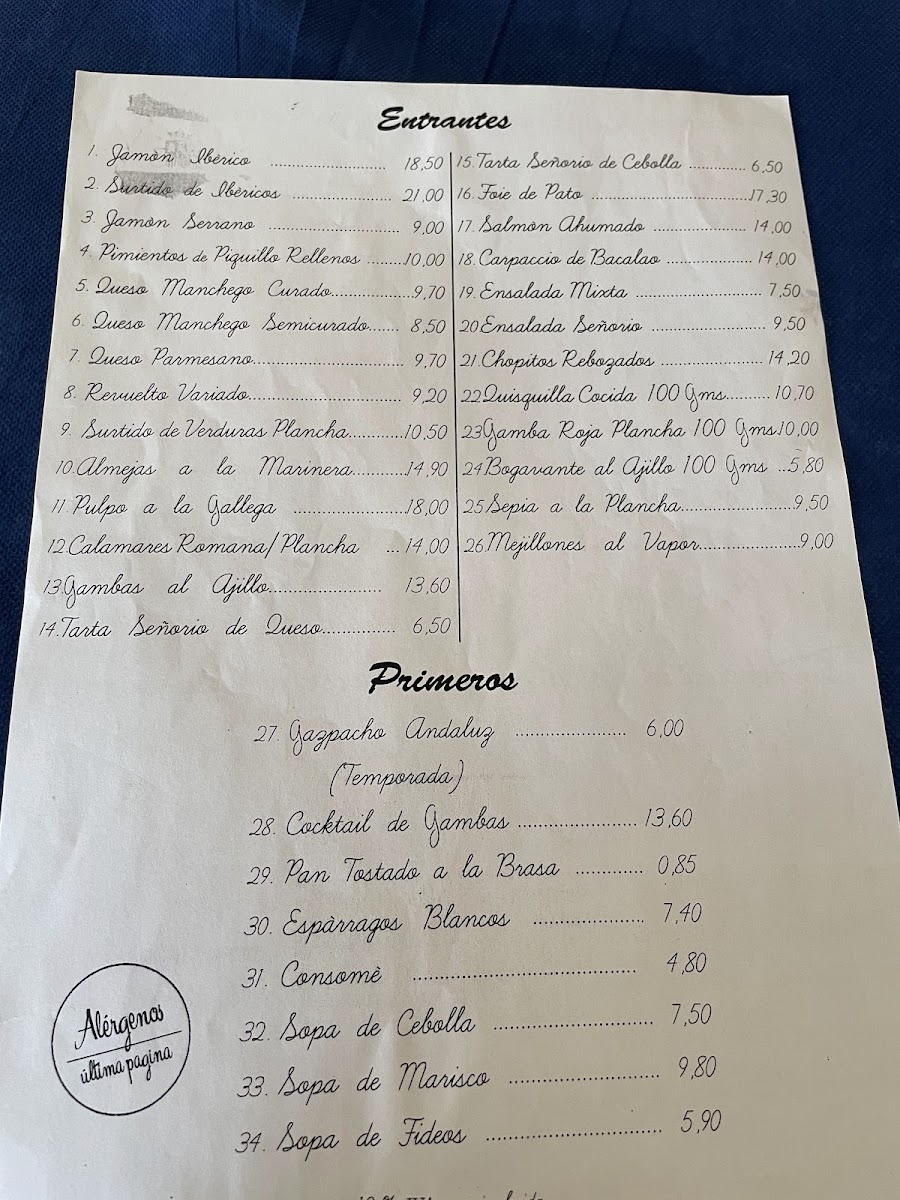 Entrantes
1. Jamòn Ibèrico ........................ 18,50
2. Surtido de Ibèricos ..................... 21,00
3. Jamòn Serrano ........................... 9,00
4. Pimientos de Piquillo Rellenos ........10,00
5. Queso Manchego Curado..................9,70
6. Queso Manchego Semicurado...... 8,50
7. Queso Parmesano............................... 9,70
8. Revuelto Variado................................ 9,20
9. Surtido de Verduras Plancha...........10,50
10.Almejas a la Marinera..........14,90
11.Pulpo a la Gallega .......................18,00
12.Calamares Romana/Plancha ...14,00
13.Gambas al Ajillo....................... 13,60
14.Tarta Señorio de Queso............... 6,50
15.Tarta Señorio de Cebolla ............ 6,50
16. Foie de Pato ................................17,30
17. Salmòn Ahumado .................... 14,00
18. Carpaccio de Bacalao ................. 14,00
19. Ensalada Mixta .......................... 7,50
20 Ensalada Señorio ........................ 9,50
21. Chopitos Rebozados ..................... 14,20
22 Quisquilla Cocida 100 Gms.........10,70
23 Gamba Roja Plancha 100 Gms.10,00
24 Bogavante al Ajillo 100 Gms ...5,80
25 Sepia a la Plancha......................9,50
26 Mejillones al Vapor....................9,00
Primeros
27. Gazpacho Andaluz ...................... 6,00
(Temporada)
28. Cocktail de Gambas ....................... 13,60
29. Pan Tostado a la Brasa ............. 0,85
30. Espàrragos Blancos ..................... 7,40
31. Consomè ......................................... 4,80
32. Sopa de Cebolla ............................. 7,50
33. Sopa de Marisco ........................... 9,80
34. Sopa de Fideos ................................ 5,90
Alérgenos
última pagina